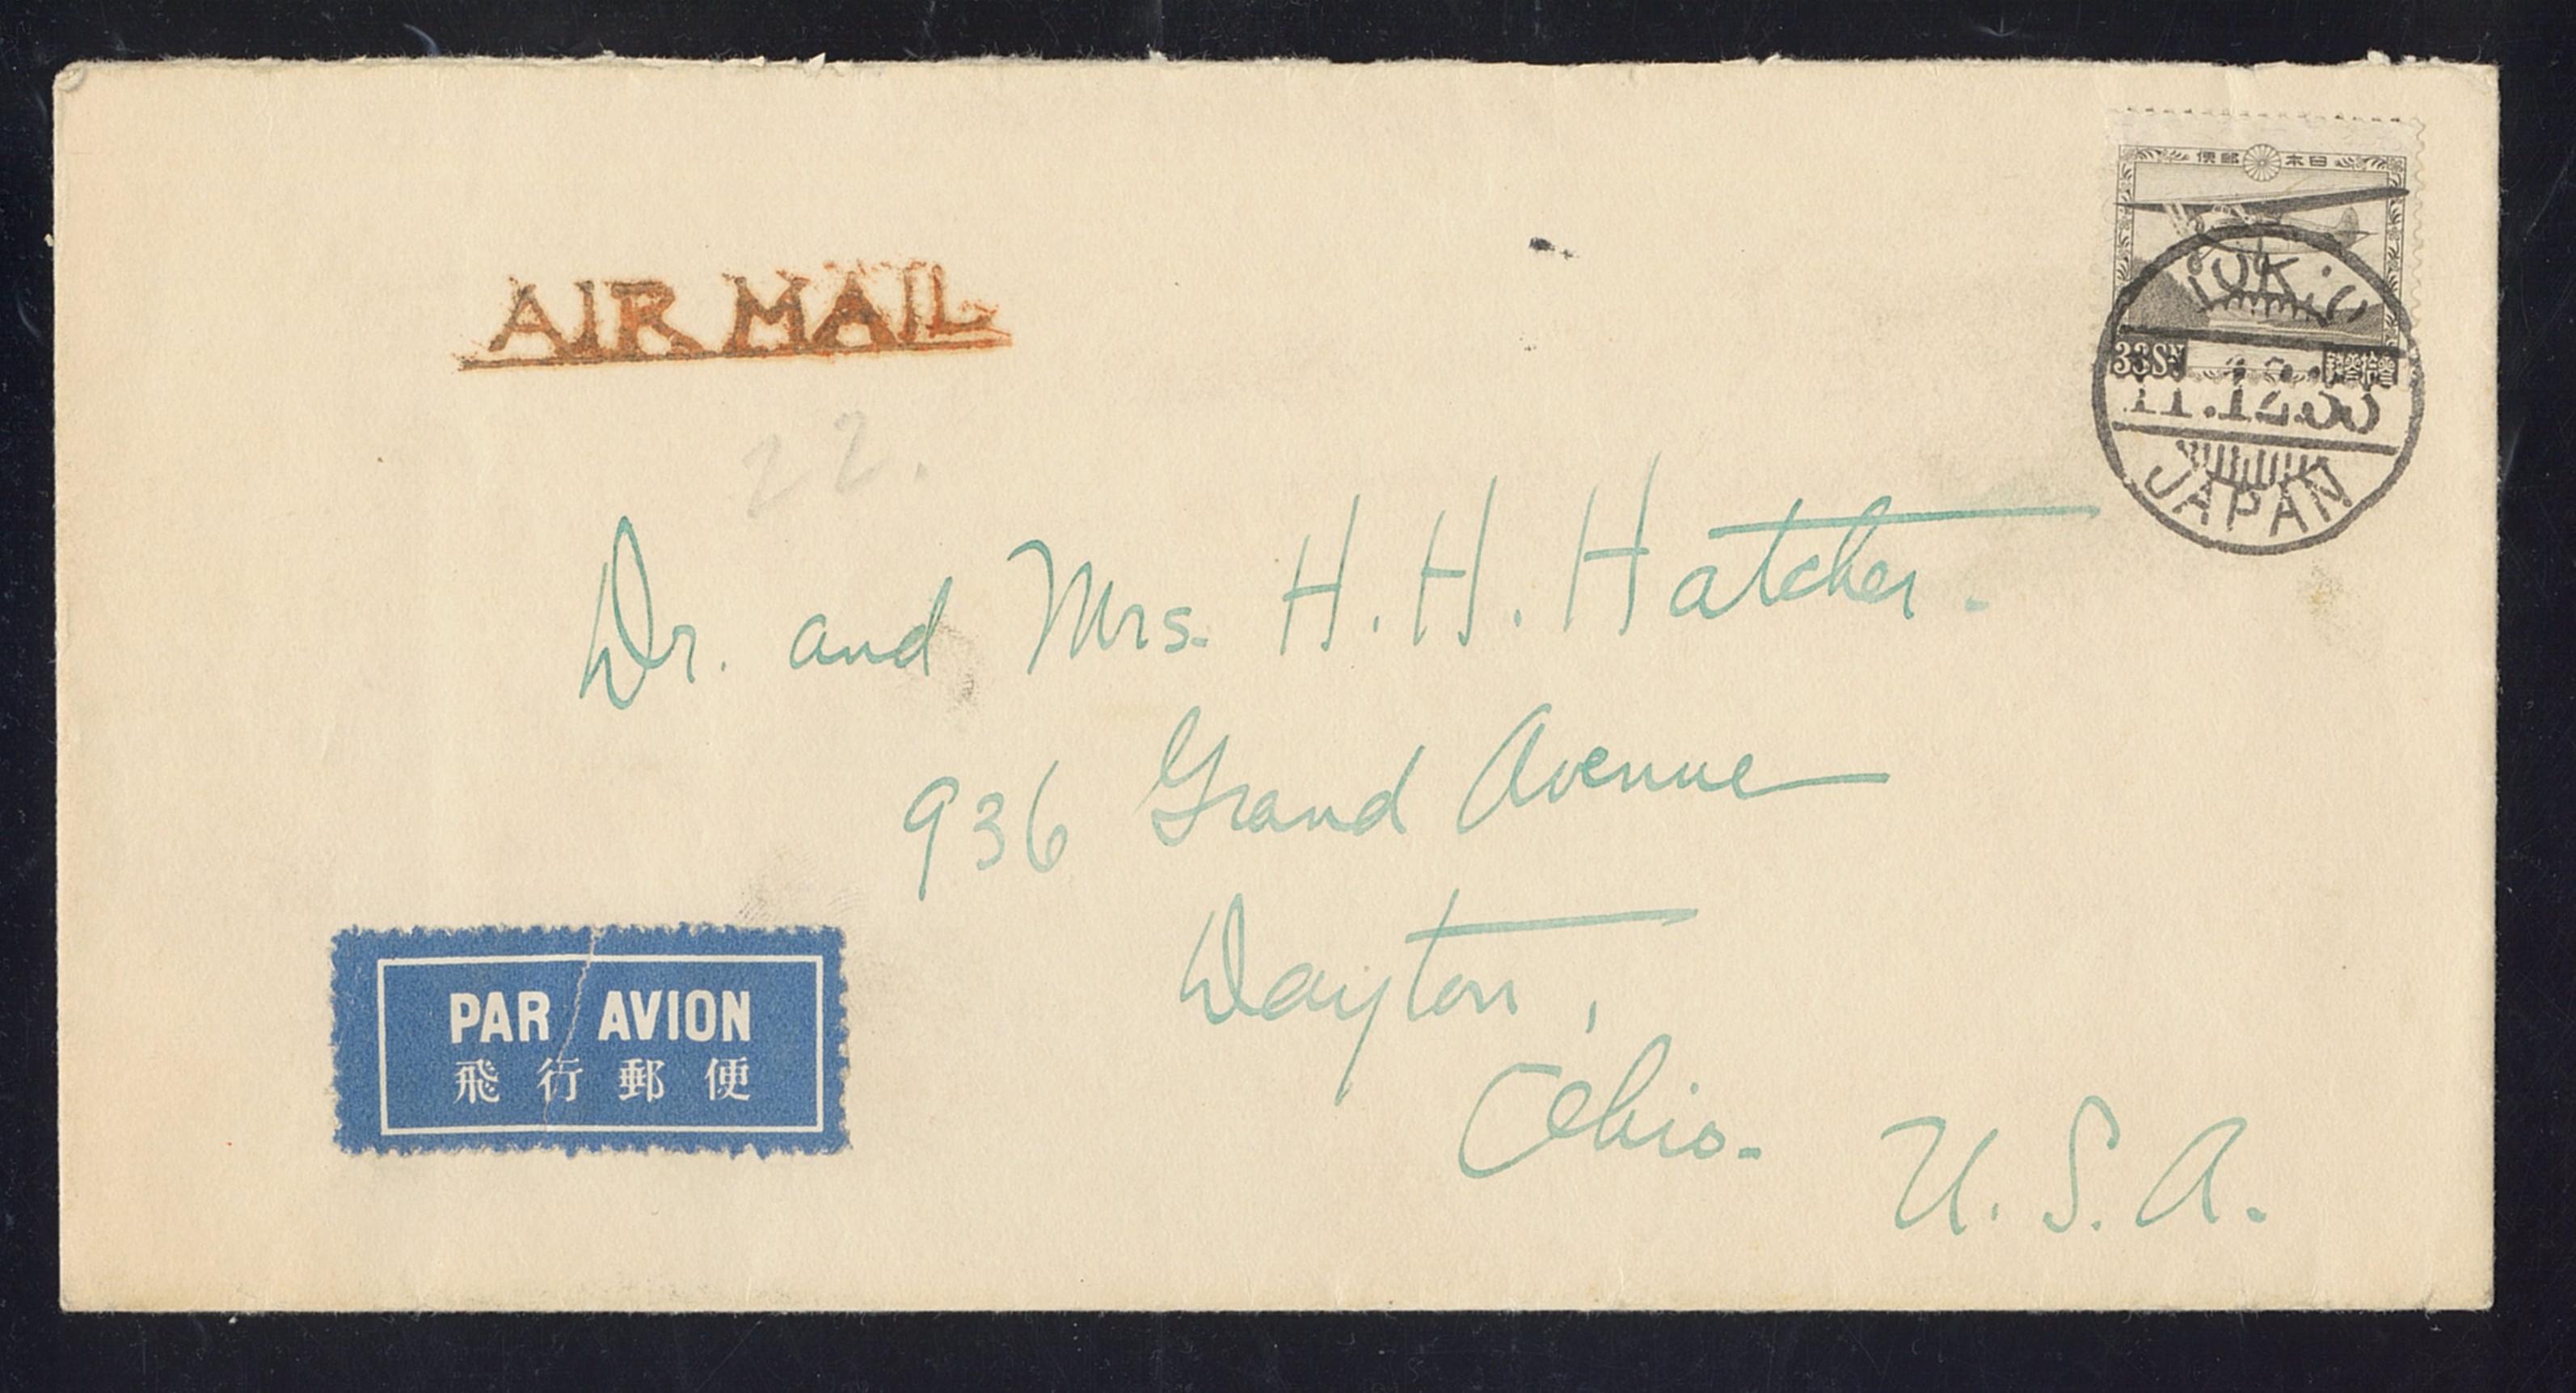 日本郵便
33Sn
TOKIO
11.12.35
JAPAN
AIR MAIL
22.
Dr. and Mrs. H. H. Hatcher.
936 Grand Avenue
Dayton,
Ohio. U. S. A.
PAR AVION
飛行郵便